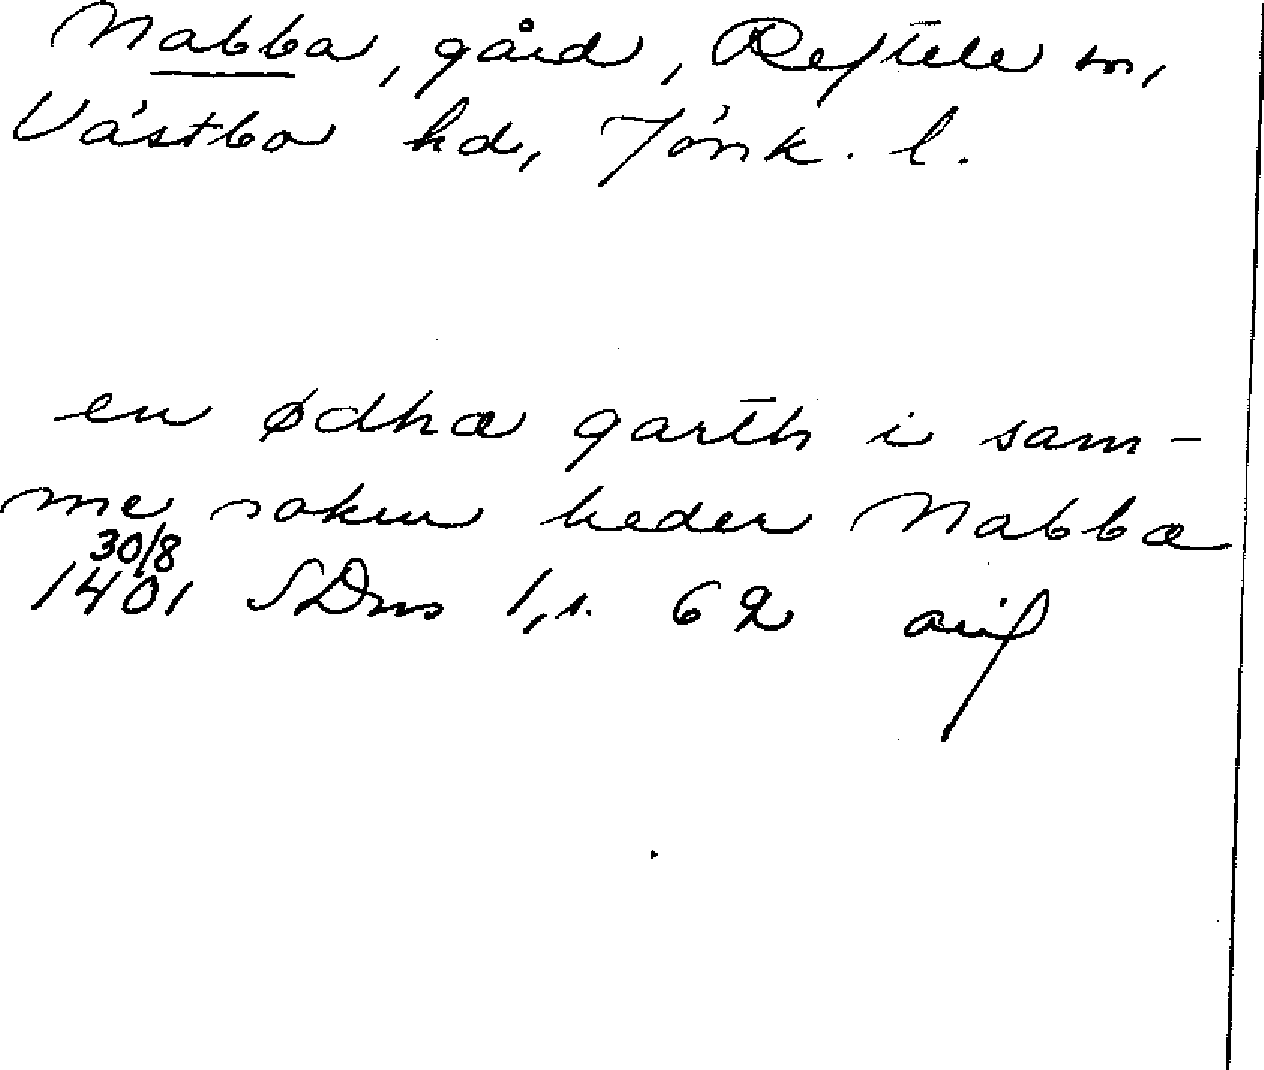 Nabba, gård, Reftele sn,
Västbo hd, Jönk. l.
en ødhæ garth i sam-
me sokn heder Nabbæ
30/8
1401 SDns 1, s. 62 avs